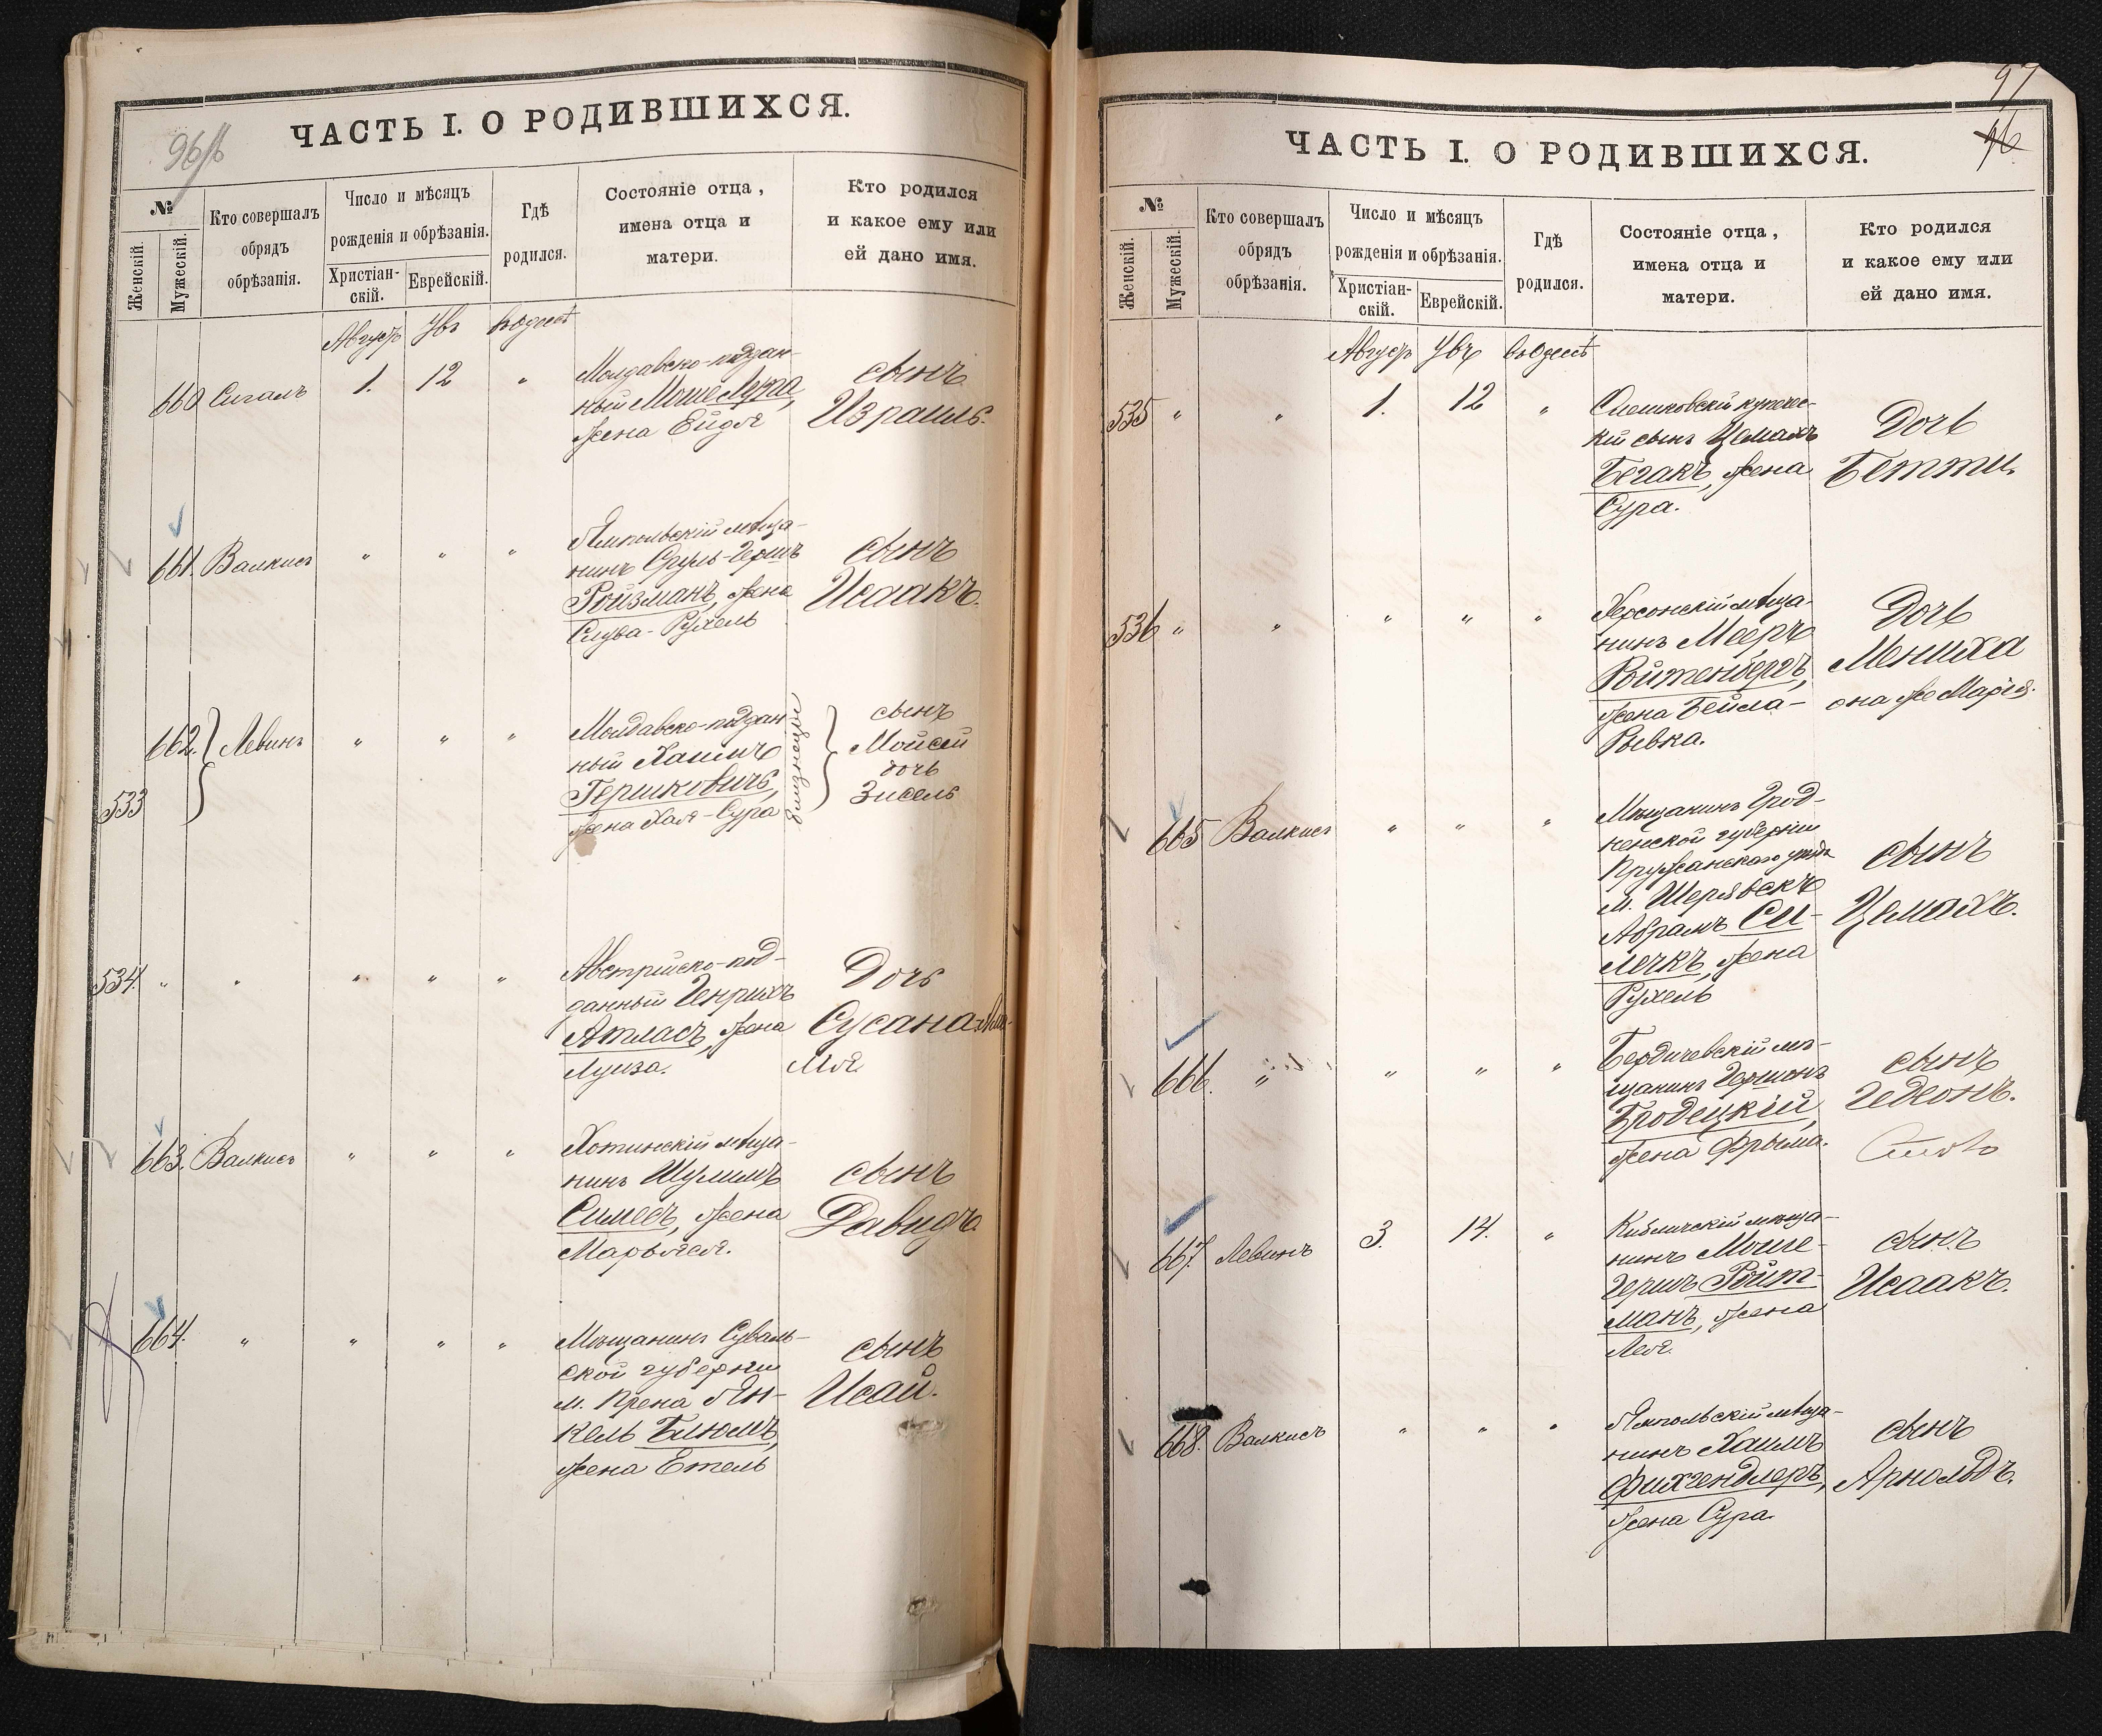 96/б
ЧАСТЬ I. О РОДИВШИХСЯ.
№
Женскій.
Мужескій.
Кто совершалъ
обрядъ
обрѣзанія.
Число и мѣсяцъ
рожденія и обрѣзанія.
Христіан-
скій.
Еврейскій.
Гдѣ
родился.
Состояніе отца,
имена отца и
матери.
Кто родился
и какое ему или
ей дано имя.
Августъ Увъ въ Одессѣ
660 Сигалъ 1. 12 "
Молдавско-поддан-
ный Моше
жена Ейдля
сынъ
Израиль.
661. Валкисъ " " "
Ямпольскій мѣща-
нинъ Сруль-Гершъ
Ройзманъ, жена
Слува-Рухель
сынъ
Исаакъ.
662. Левинъ " " "
533
Молдавско-поддан-
ный Хаимъ
Гершковичъ,
жена Хая-Сура
близнецы
сынъ
Мойсей
дочь
Зисель
534. " " " " "
Австрійско-под-
данный Генрихъ
Атласъ, жена
Луиза.
Дочь
Сусана-
663. Валкисъ " " "
Хотинскій мѣща-
нинъ Шулимъ
жена
Марьяся.
сынъ
Давидъ.
664. " " " "
Мѣщанинъ Суваль-
ской губерніи
м. Прена Ян-
кель Блюмъ,
жена Етель
сынъ
Исай.
97
96
ЧАСТЬ I. О РОДИВШИХСЯ.
№
Женскій.
Мужескій.
Кто совершалъ
обрядъ
обрѣзанія.
Число и мѣсяцъ
рожденія и обрѣзанія.
Христіан-
скій.
Еврейскій.
Гдѣ
родился.
Состояніе отца,
имена отца и
матери.
Кто родился
и какое ему или
ей дано имя.
Августъ Увъ въ Одессѣ
535 " " 1. 12 "
купечес-
кій сынъ Цемахъ
Бегакъ, жена
Сура.
Дочь
Бетти.
536 " " " " "
Херсонскій мѣща-
нинъ Мееръ
Войтенбергъ,
жена Бейла-
Рывка.
Дочь
Мениха
она же Марія.
665 Валкисъ " " "
Мѣщанинъ Грод-
ненской губерніи
Пружанскаго уѣзда
м. Шерявскъ
Абрамъ Си-
лечкъ, жена
Рухель
сынъ
Цемахъ.
666. " " " "
Бердичевскій мѣ-
щанинъ Гершонъ
Бродецкій,
жена Фрыма.
сынъ
Гедеонъ.
667. Левинъ 3. 14. "
Кибличскій мѣща-
нинъ Моше-
Гершъ Ройт-
манъ, жена
Лея.
сынъ
Исаакъ.
668. Валкисъ " " "
Ямпольскій мѣща-
нинъ Хаимъ
Фихгендлеръ,
жена Сура.
сынъ
Арнольдъ.